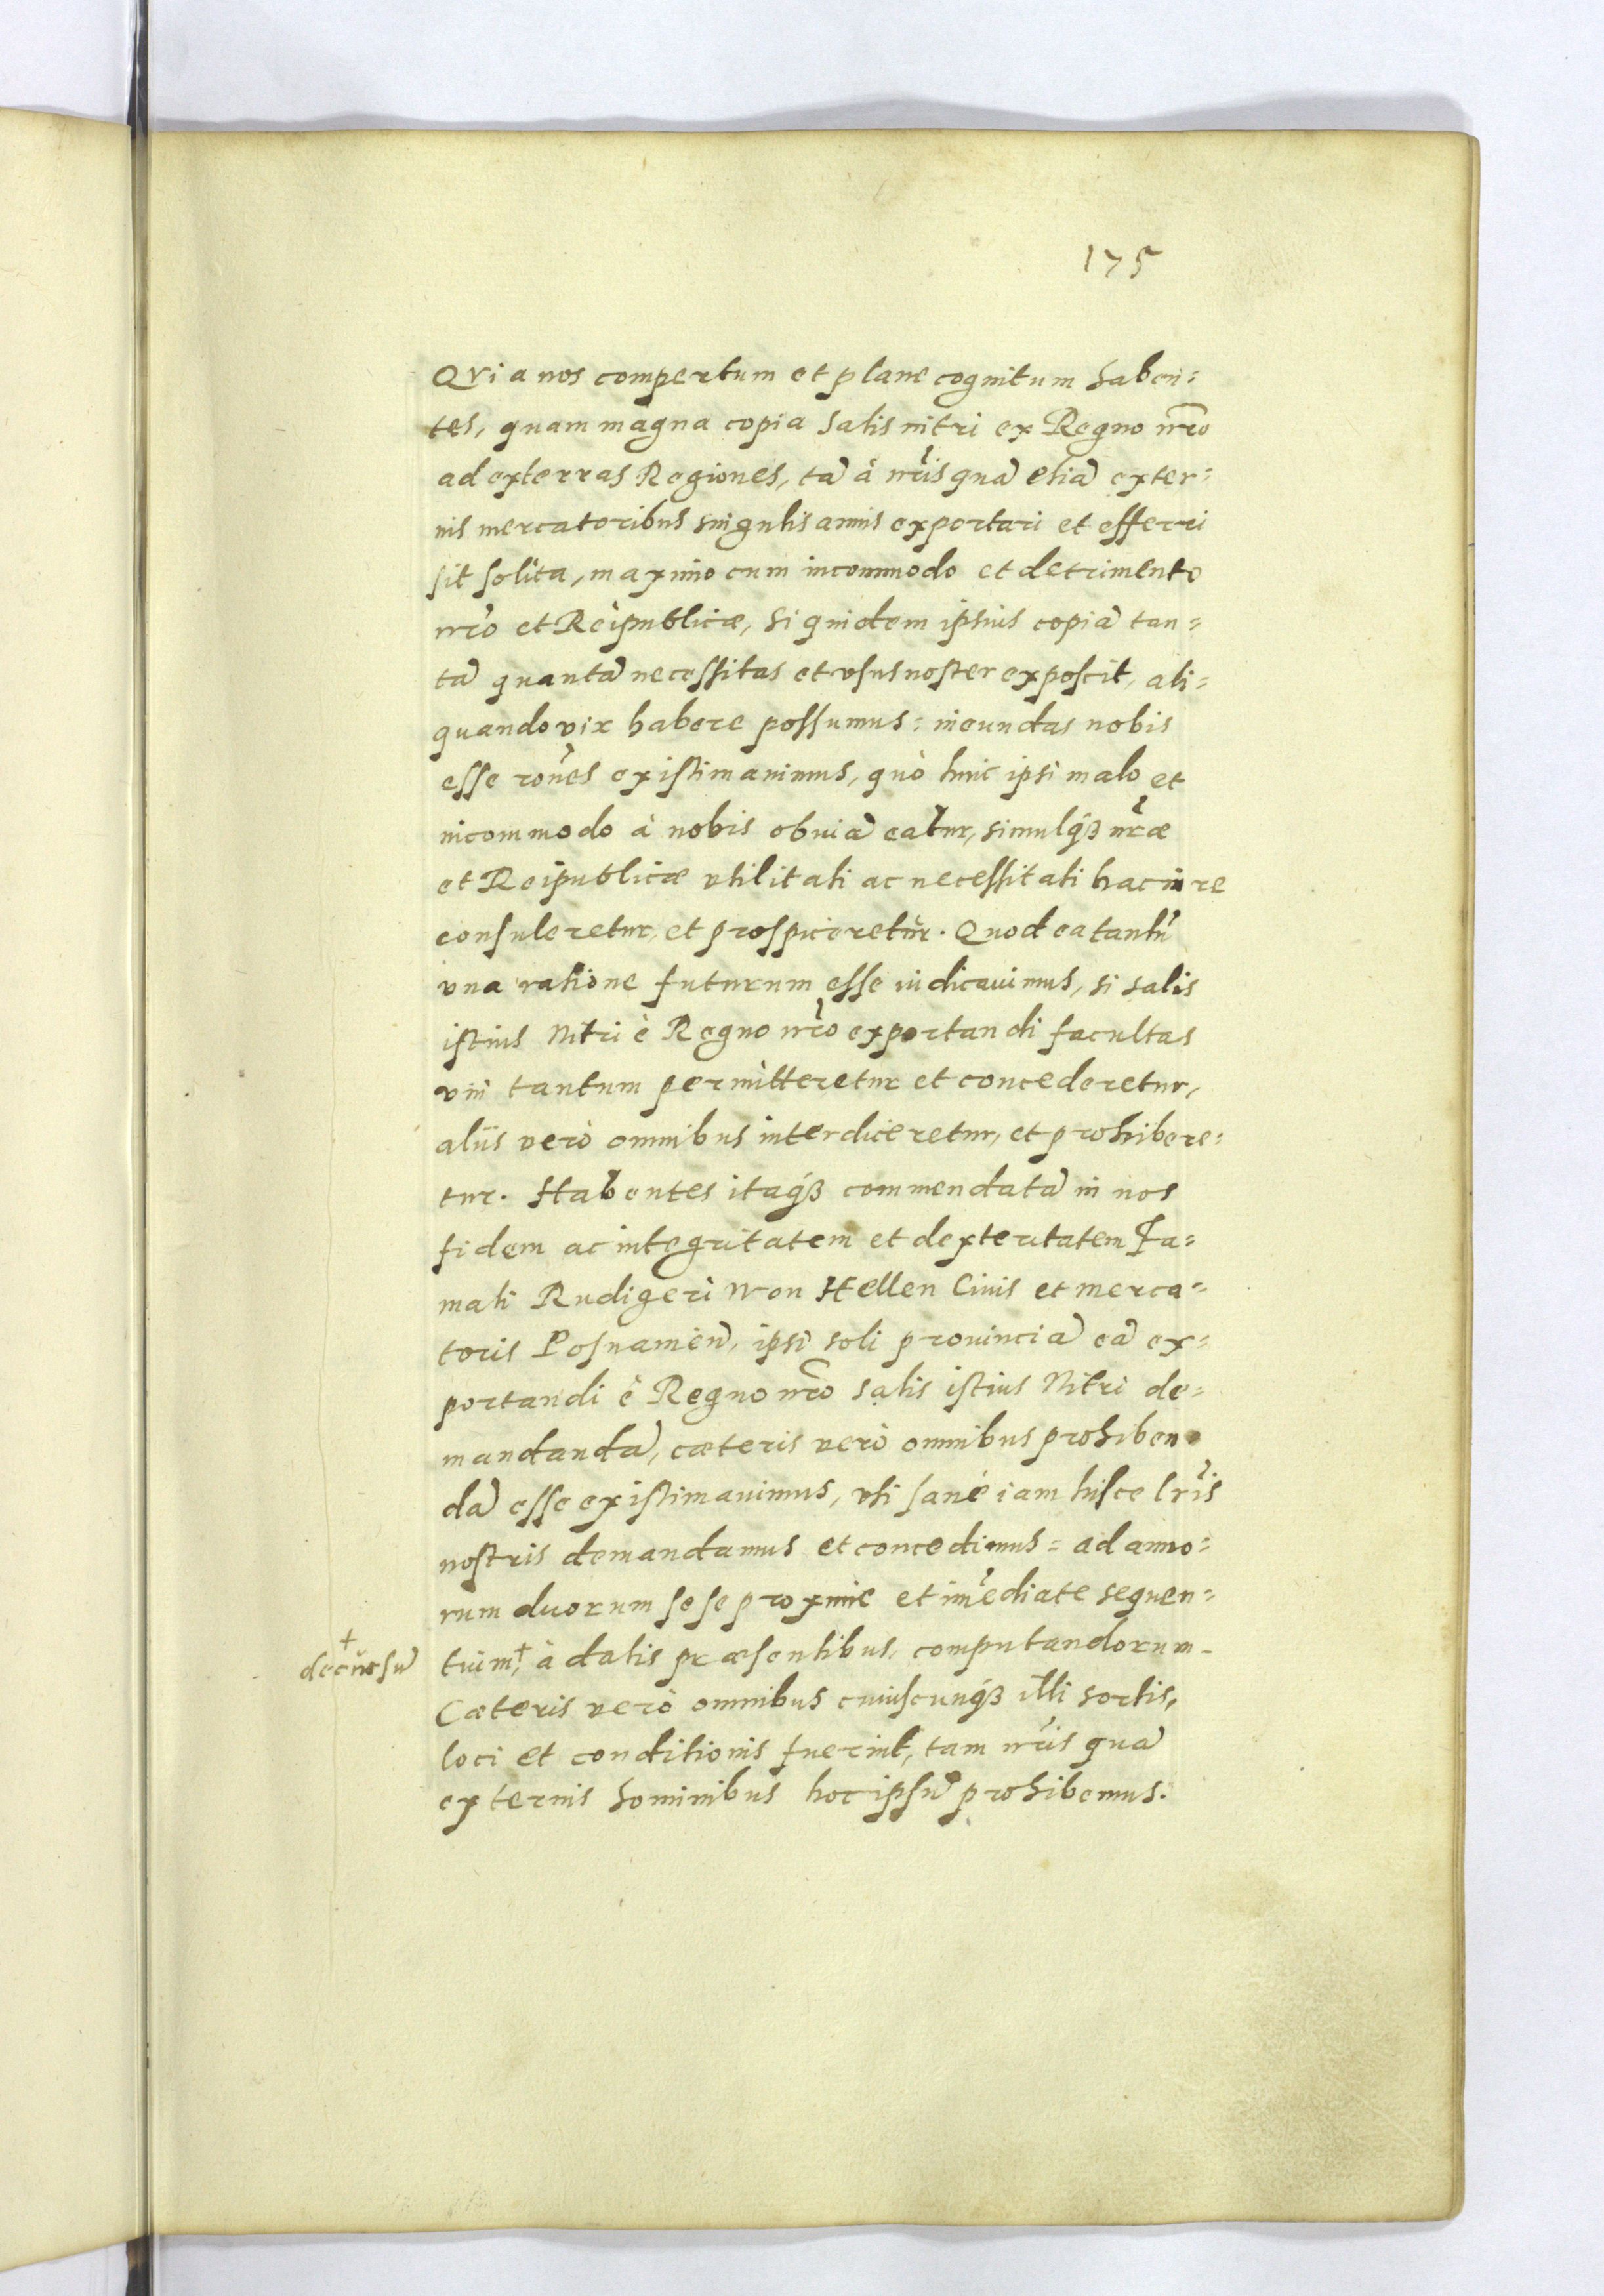 175
QVia nos compertum et plane cognitum haben:
tes, quam magna copia salis nitri ex Regno nr̃o
ad exterras Regiones, tã à nr̃is quã etiã exter:
nis mercatoribus singulis annis exportari et efferri
sit solita, maximo cum incommodo et detrimento
nr̃o et Reipublicæ, siquidem ipsius copiã tan:
tã quantã necessitas et vsus noster exposcit, ali:
quando vix habere possumus: ineundas nobis
esse rões existimauimus, quò huic ipsi malo et
incommodo à nobis obuiã eatur, simulqȝ nr̃æ
et Reipublicæ vtilitati ac necessitati hac in re
consuleretur, et prospiceretur. Quod ea tantũ
vna ratione futurum esse iudicauimus, si salis
istius Nitri è Regno nr̃o exportandi facultas
vni tantum permitteretur et concederetur,
aliis verò omnibus interdiceretur, et prohibere:
tur. Habentes itaqȝ commendatã in nos
fidem ac integritatem et dexteritatem Fa:
mati Rudigeri Von Hellen Ciuis et merca:
toris Posnamieñ, ipsi soli prouinciã eã ex:
portandi è Regno nr̃o salis istius Nitri de:
mandandã, cæteris verò omnibus prohiben
dã esse existimauimus, vti sanè iam hisce lr̃is
nostris demandamus et concedimus: ad anno:
rum duorum sese proxime et im̃ediate sequen:
tium,† à datis præsentibus, computandorum.
† decursũ
Cæteris verò omnibus cuiuscunqȝ illi sortis,
loci et conditionis fuerint, tam nr̃is quã
externis hominibus hoc ipsũ prohibemus.